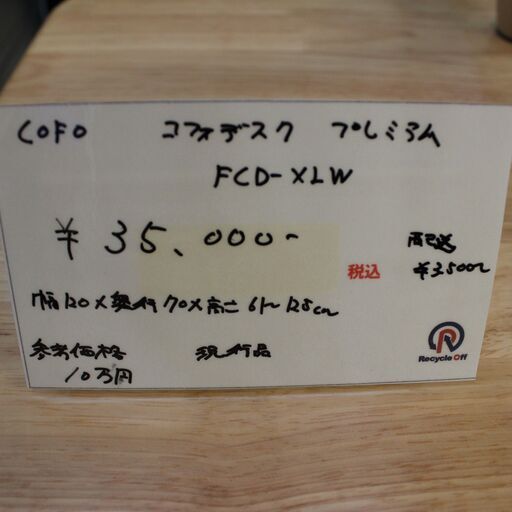 COFO コフォデスク プレミアム
FCD-XLW
¥35,000-
税込
配送
¥3500〜
幅120×奥行70×高さ61〜125cm
参考価格
10万円
現行品
Recycle Off